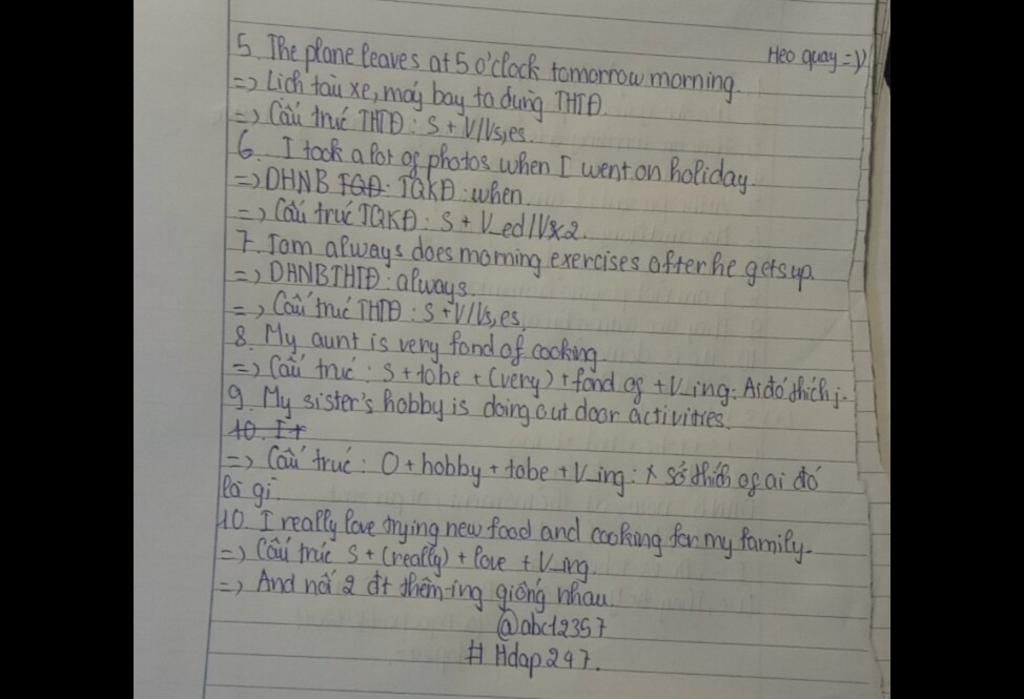 Heo quay =))
5. The plane leaves at 5 o'clock tomorrow morning.
=> Lịch tàu xe, máy bay ta dùng THTĐ.
=> Cấu trúc THTĐ: S + V/Vs,es.
6. I took a lot of photos when I went on holiday.
=> DHNB TQĐ: TQKĐ: when.
=> Cấu trúc TQKĐ: S + V_ed/V2.
7. Tom always does morning exercises after he gets up.
=> DHNB THTĐ: always.
=> Cấu trúc THTĐ: S + V/Vs,es.
8. My aunt is very fond of cooking.
=> Cấu trúc: S + tobe + (very) + fond of + V_ing: Ai đó thích j.
9. My sister's hobby is doing out door activities.
10. It
=> Cấu trúc: O + hobby + tobe + V_ing: sở thích of ai đó
là gì.
10. I really love trying new food and cooking for my family.
=> Cấu trúc S + (really) + love + V_ing.
=> And nối 2 đt thêm -ing giống nhau.
@abc12357
# Hdap247.